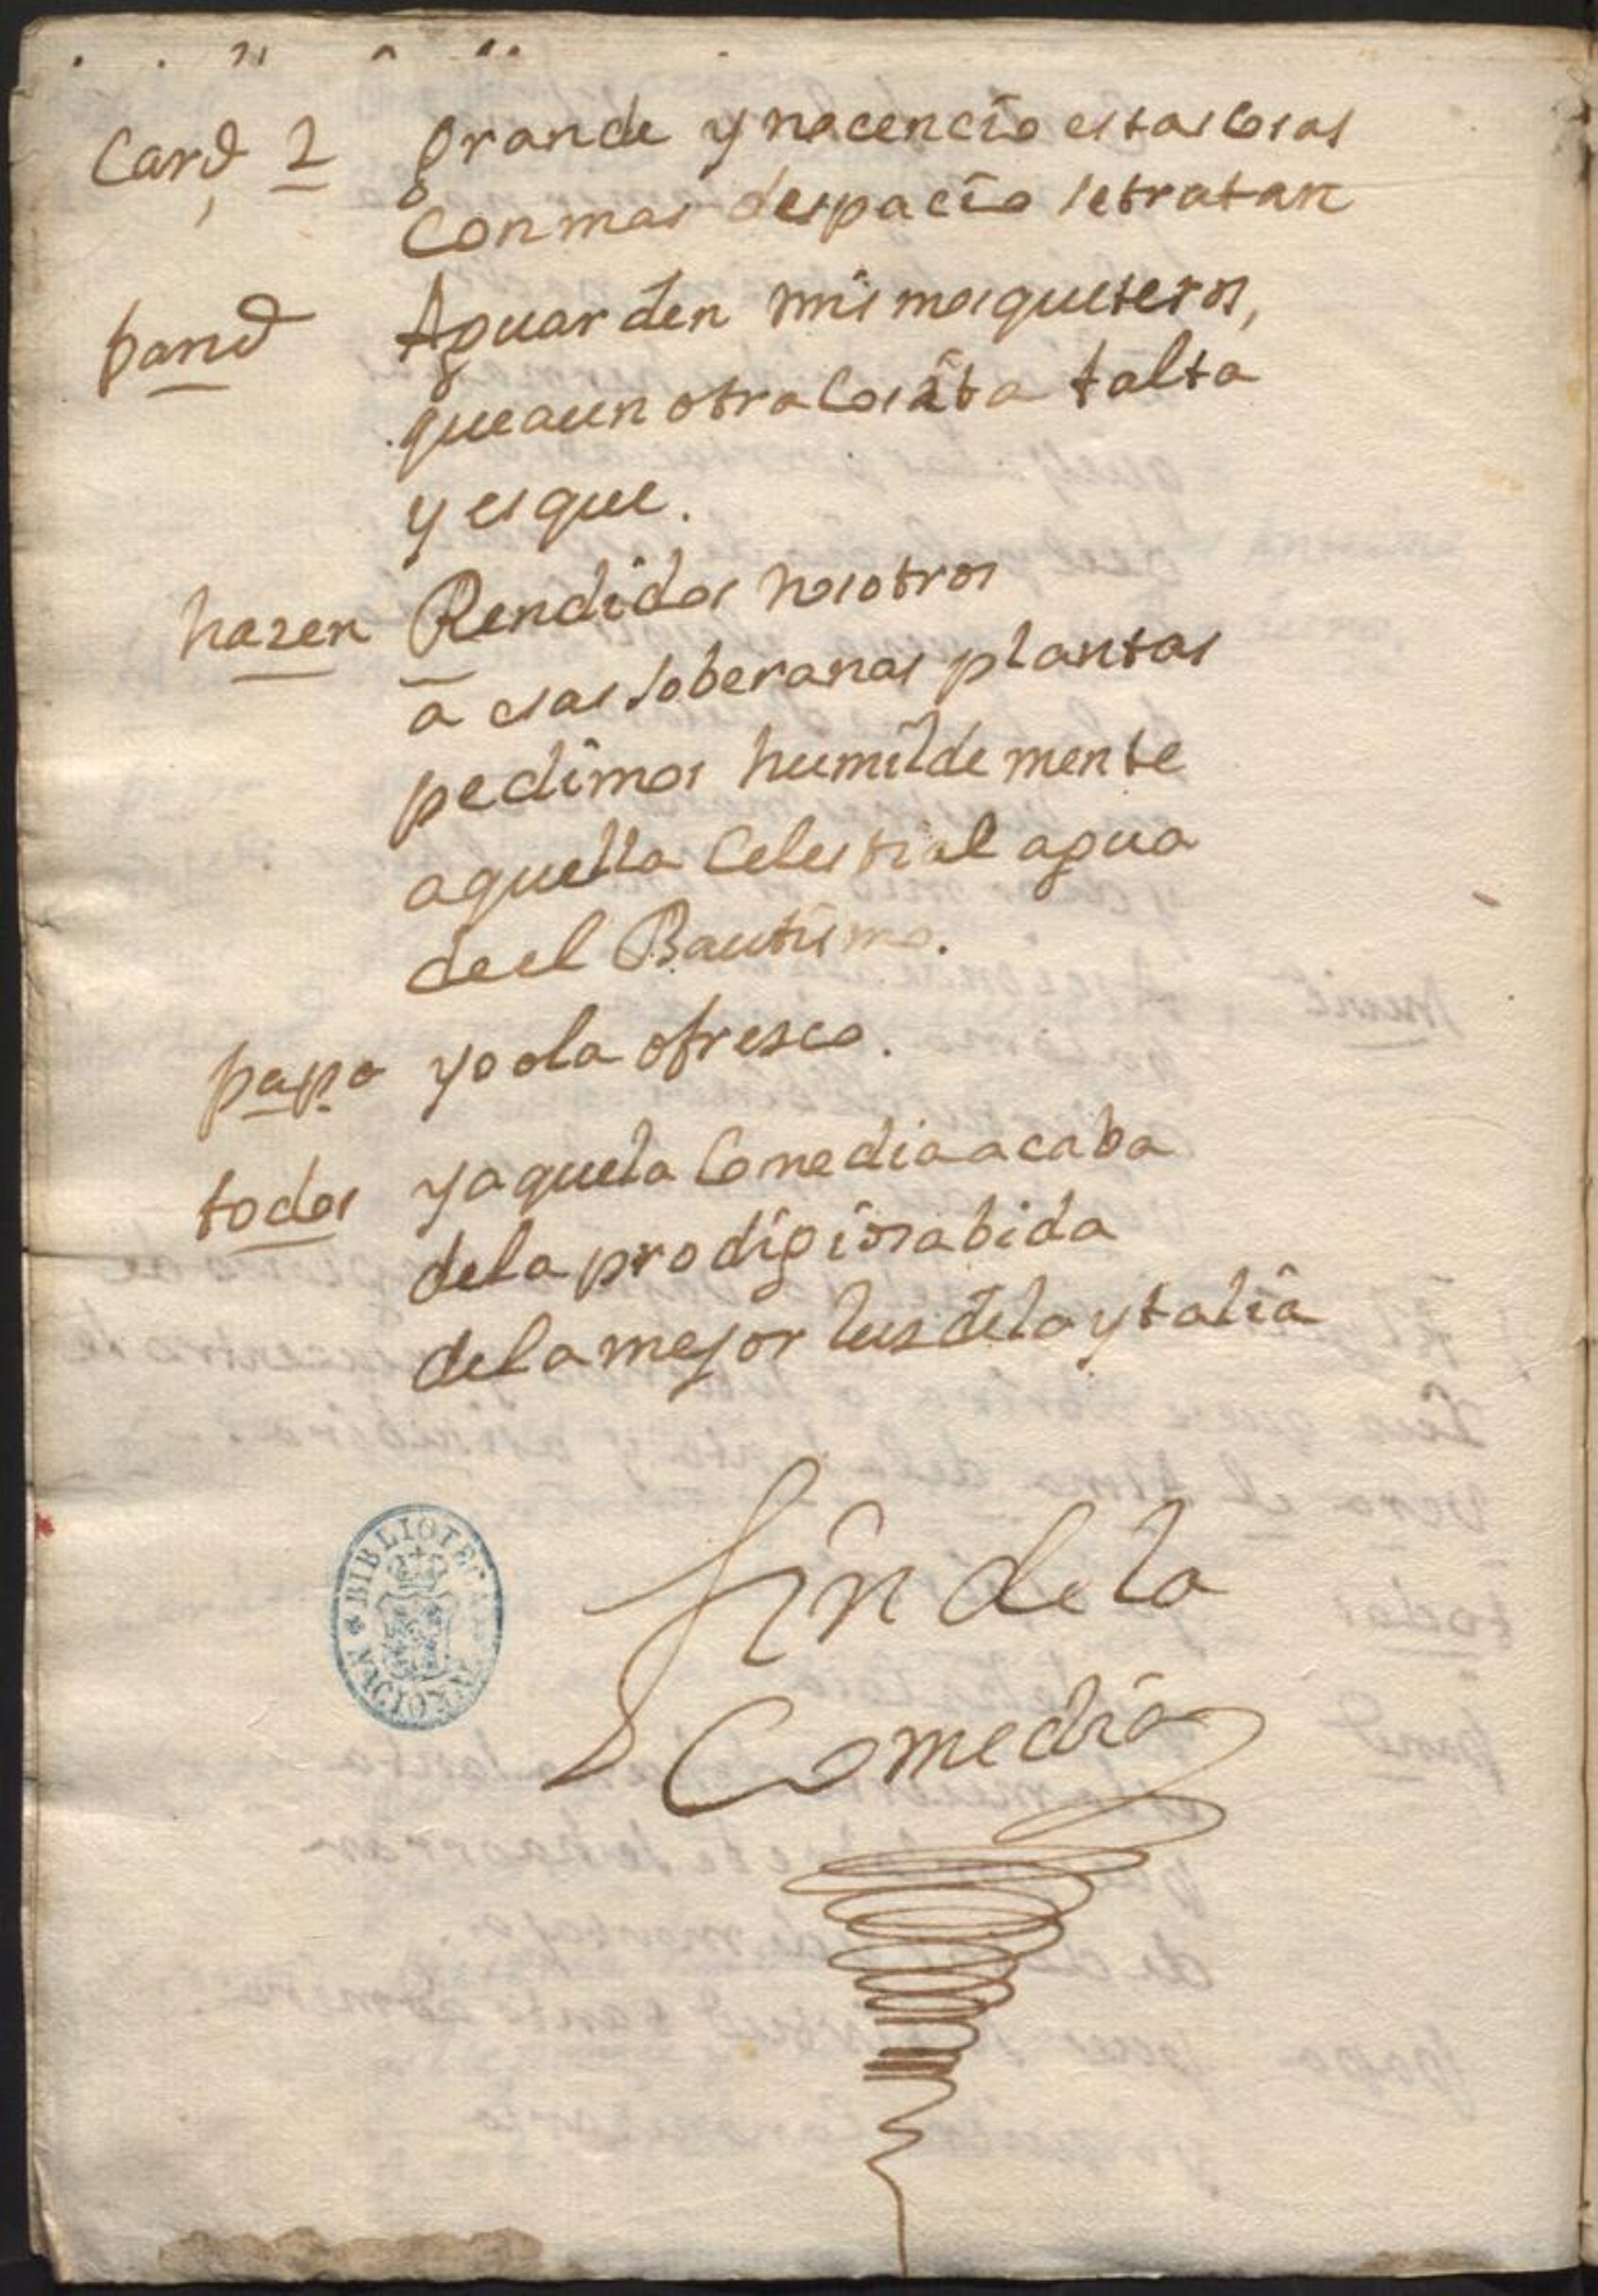 Card 2 grande ynocencio estas cosas
con mas despacio se tratan
pand Aguarden mis mosqueteros,
que aun otra cosita falta
y es que.
hazen Rendidos nosotros
a esas soberanas plantas
pedimos humildemente
aquella Celestial agua
de el Bautismo.
papa yo ola ofresco.
todos ya que la Comedia acaba
de la prodigiosa bida
de la mejor lus de la ytalia
fin de la
Comedia
BIBLIOTECA NACIONAL